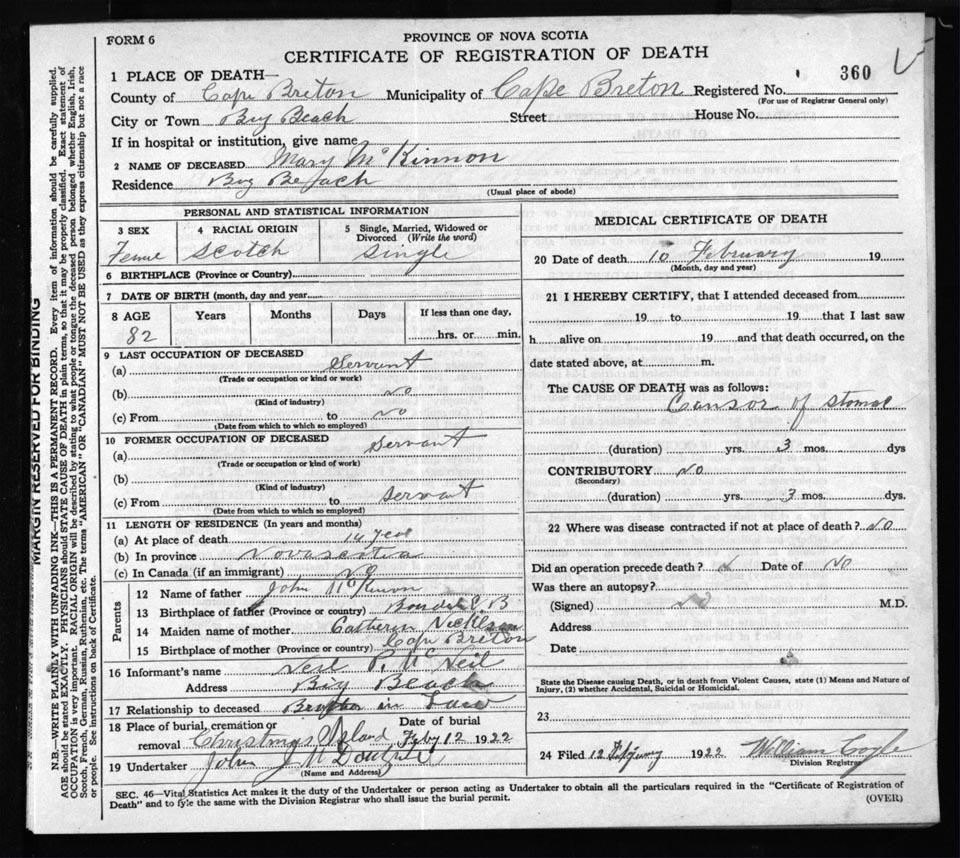 FORM 6
PROVINCE OF NOVA SCOTIA
CERTIFICATE OF REGISTRATION OF DEATH
1 PLACE OF DEATH—
360
County of Cape Breton Municipality of Cape Breton Registered No.
(For use of Registrar General only)
City or Town Big Beach Street House No.
If in hospital or institution, give name
2 NAME OF DECEASED Mary McKinnon
Residence Big Beach
(Usual place of abode)
PERSONAL AND STATISTICAL INFORMATION
3 SEX 4 RACIAL ORIGIN 5 Single, Married, Widowed or Divorced (Write the word)
Scotch Single
6 BIRTHPLACE (Province or Country)
7 DATE OF BIRTH (month, day and year)
8 AGE Years Months Days If less than one day,
82 hrs. or min.
9 LAST OCCUPATION OF DECEASED
(a) Servant
(Trade or occupation or kind or work)
(b) no
(Kind of industry)
(c) From to no
(Date from which to which so employed)
10 FORMER OCCUPATION OF DECEASED
(a) Servant
(Trade or occupation or kind of work)
(b)
(Kind of industry)
(c) From to servant
(Date from which to which so employed)
11 LENGTH OF RESIDENCE (In years and months)
(a) At place of death 14
(b) In province Novascotia
(c) In Canada (if an immigrant)
Parents
12 Name of father John McKinnon
13 Birthplace of father (Province or country)
14 Maiden name of mother
15 Birthplace of mother (Province or country) Cape Breton
16 Informant's name Neil P. McNeil
Address Big Beach
17 Relationship to deceased in Law
18 Place of burial, cremation or removal Christmas Island Date of burial Feby 12 1922
19 Undertaker John J
(Name and Address)
MEDICAL CERTIFICATE OF DEATH
20 Date of death 10 February 19
(Month, day and year)
21 I HEREBY CERTIFY, that I attended deceased from
19 to 19 that I last saw
h alive on 19 and that death occurred, on the
date stated above, at m.
The CAUSE OF DEATH was as follows:
Cansor of stomac
(duration) yrs. 3 mos. dys
CONTRIBUTORY No
(Secondary)
(duration) yrs. 3 mos. dys.
22 Where was disease contracted if not at place of death? no
Did an operation precede death? Date of No
Was there an autopsy?
(Signed) No M.D.
Address
Date
State the Disease causing Death, or in death from Violent Causes, state (1) Means and Nature of
Injury, (2) whether Accidental, Suicidal or Homicidal.
23
24 Filed 12 1922 William Coyle
Division Registrar
SEC. 46—Vital Statistics Act makes it the duty of the Undertaker or person acting as Undertaker to obtain all the particulars required in the "Certificate of Registration of
Death" and to file the same with the Division Registrar who shall issue the burial permit.
(OVER)
MARGIN RESERVED FOR BINDING
N.B.—WRITE PLAINLY WITH UNFADING INK—THIS IS A PERMANENT RECORD. Every item of information should be carefully supplied.
AGE should be stated EXACTLY. PHYSICIANS should STATE CAUSE OF DEATH in plain terms, so that it may be properly classified. Exact statement of
OCCUPATION is very important. RACIAL ORIGIN will be described by stating to what people or tongue the deceased person belonged whether English, Irish,
Scotch, French, German, Russian, Ruthenian, etc. The terms "AMERICAN" or "CANADIAN" MUST NOT BE USED as they express citizenship but not a race
or people. See instructions on back of Certificate.